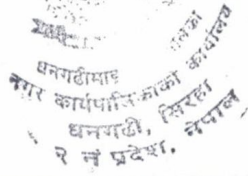 धनगढीमाई
नगर कार्यपालिकाको कार्यालय
धनगढी, सिरहा
२ नं प्रदेश, नेपाल